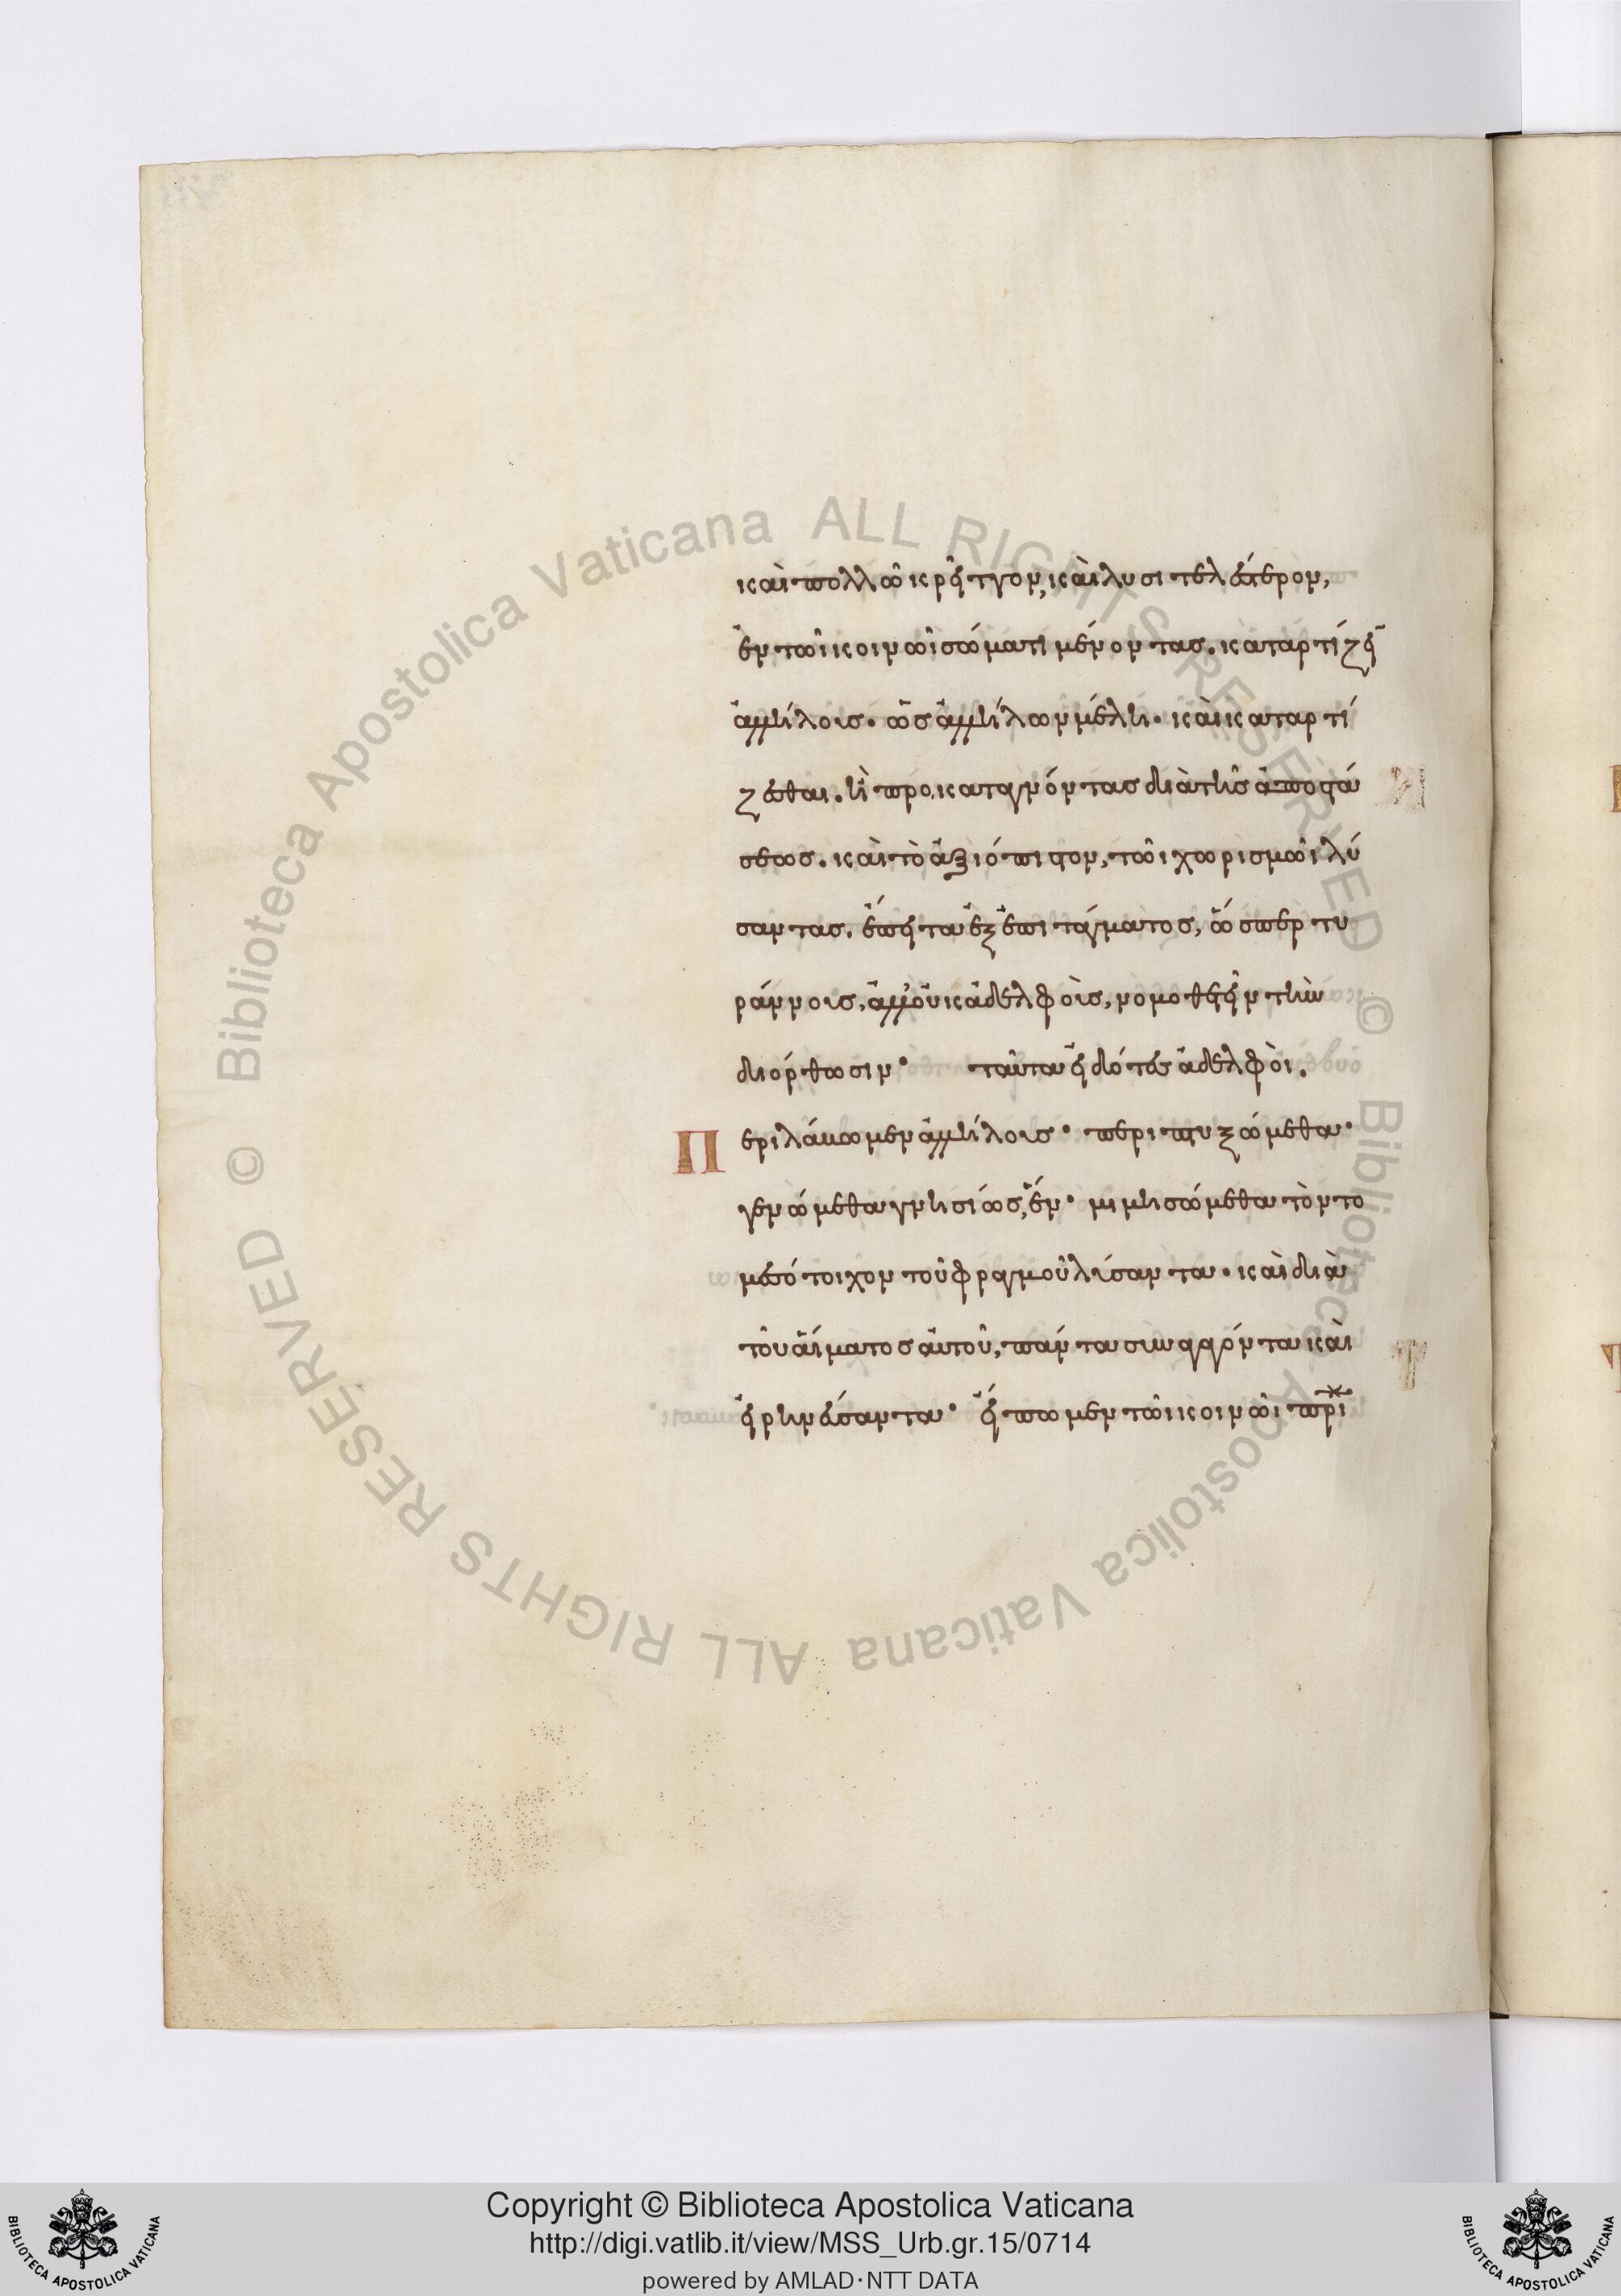 καὶ πολλῶ κρεῖττον, καὶ λυσιτελέστερον,
ἐν τῶι κοινῶι σώματι μένοντας. καταρτίζειν
ἀλλήλοις. ὡς ἀλλήλων μέλη. καὶ καταρτί
ζεσθαι. ἢ προκαταγνόντας διὰ τῆς ἀποστά
σεως. καὶ τὸ ἀξιόπιστον, τῶι χωρισμῶι λύ
σαντας. ἔπειτα ἐξ ἐπιτάγματος, ὥσπερ τυ
ράννοις, ἀλλ' οὐκ ἀδελφοῖς, νομοθετεῖν τὴν
διόρθωσιν· ταῦτα εἰδότες ἀδελφοὶ.
Περιλάβωμεν ἀλλήλοις· περιπτυξώμεθα·
γενώμεθα γνησίως, ἕν· μιμησώμεθα τὸν τὸ
μεσότοιχον τοῦ φραγμοῦ λύσαντα. καὶ διὰ
τοῦ αἵματος αὐτοῦ, πάντα συναγαγόντα καὶ
εἰρηνεύσαντα· εἴπωμεν τῶι κοινῶι πρι
Copyright © Biblioteca Apostolica Vaticana
http://digi.vatlib.it/view/MSS_Urb.gr.15/0714
powered by AMLAD·NTT DATA
BIBLIOTECA APOSTOLICA VATICANA
BIBLIOTECA APOSTOLICA VATICANA
© Biblioteca Apostolica Vaticana ALL RIGHTS RESERVED
© Biblioteca Apostolica Vaticana ALL RIGHTS RESERVED